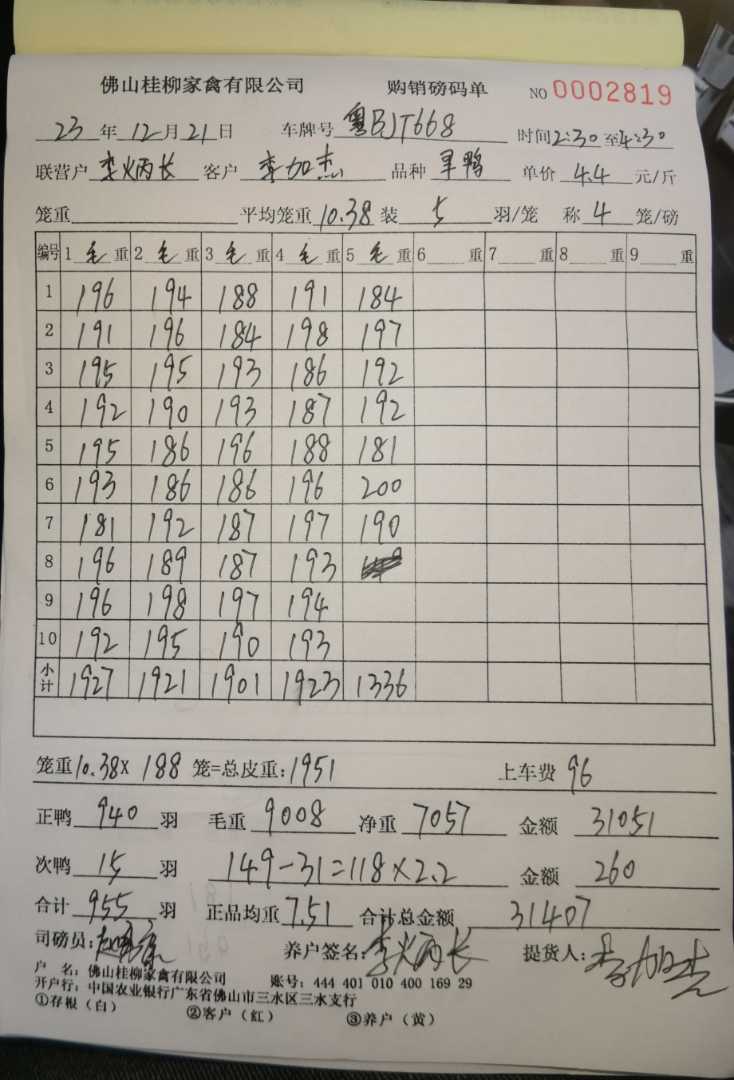 佛山桂柳家禽有限公司 购销磅码单 NO 0002819
23 年 12 月 21 日 车牌号 粤BJT668 时间 2:30 至 4:30
联营户 李炳长 客户 李加杰 品种 旱鸭 单价 4.4 元/斤
笼重 平均笼重 10.38 装 5 羽/笼 称 4 笼/磅
编号 1 毛 重 2 毛 重 3 毛 重 4 毛 重 5 毛 重 6 重 7 重 8 重 9 重
1 196 194 188 191 184
2 191 196 184 198 197
3 195 195 193 186 192
4 192 190 193 187 192
5 195 186 196 188 181
6 193 186 186 196 200
7 181 192 187 197 190
8 196 189 187 193
9 196 198 197 194
10 192 195 190 193
小计 1927 1921 1901 1923 1336
笼重 10.38 X 188 笼=总皮重: 1951 上车费 96
正鸭 940 羽 毛重 9008 净重 7057 金额 31051
次鸭 15 羽 149-31=118×2.2 金额 260
合计 955 羽 正品均重 7.51 合计总金额 31407
司磅员: 养户签名: 李炳长 提货人: 李加杰
户 名: 佛山桂柳家禽有限公司 账号: 444 401 010 400 169 29
开户行: 中国农业银行广东省佛山市三水区三水支行
①存根（白） ②客户（红） ③养户（黄）